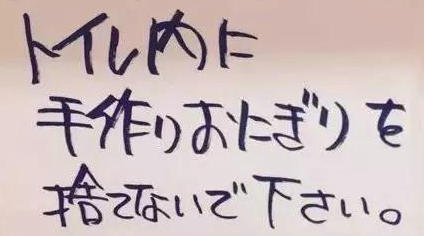 トイレ内に
手作りおにぎりを
捨てないで下さい。